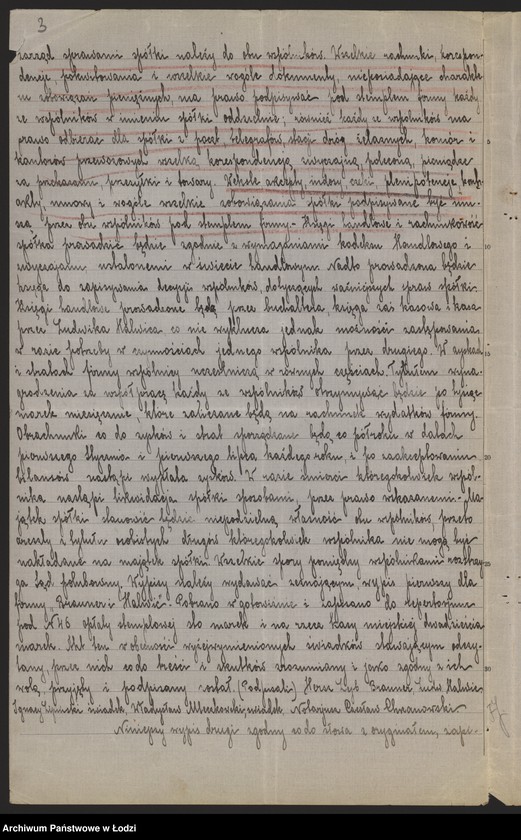 3
zarząd sprawami spółki należy do obu wspólników. Wszelkie rachunki, korespon-
dencje, pokwitowania i wszelkie wogóle dokumenty, nieposiadające charakte-
ru zobowiązań pieniężnych, ma prawo podpisywać pod stemplem firmy każdy
ze wspólników w imieniu spółki oddzielnie; również każdy ze wspólników ma
prawo odbierać dla spółki z poczt, telegrafów, stacji dróg żelaznych, komór i
kantorów przewozowych wszelką korespondencję, zwyczajną, poleconą, pieniądze
za przekazami, przesyłki i towary. Weksle, akcepty, indosy, czeki, plenipotencje, kontr-
akty, umowy i wogóle wszelkie zobowiązania spółki podpisywane być win-
ny przez obu wspólników pod stemplem firmy. Księgi handlowe i rachunkowość
spółka prowadzić będzie zgodnie z wymaganiami kodeksu Handlowego i
zwyczajami ustalonemi w świecie handlowym. Nadto prowadzona będzie
księga do zapisywania decyzji wspólników, dotyczących ważniejszych spraw spółki.
Księgi handlowe prowadzone będą przez buchaltera, księga zaś kasowa i kasa
przez Ludwika Halwica, co nie wyklucza jednak możności zastępowania
w razie potrzeby w czynnościach jednego wspólnika przez drugiego. W zyskach
i stratach firmy wspólnicy uczestniczą w równych częściach. Tytułem wyna-
grodzenia za współpracę każdy ze wspólników otrzymywać będzie po tysiąc
marek miesięcznie, które zaliczane będą na rachunek wydatków firmy.
Obrachunki co do zysków i strat sporządzane będą co półroku w datach
pierwszego Stycznia i pierwszego Lipca każdego roku, i po zaakceptowaniu
bilansów nastąpi wypłata zysków. W razie śmierci któregokolwiek wspól-
nika nastąpi likwidacja spółki sposobami, przez prawo wskazanemi. Ma-
jątek spółki stanowić będzie niepodzielną własność obu wspólników, przeto
areszty z tytułu osobistych długów któregokolwiek wspólnika nie mogą być
nakładane na majątek spółki. Wszelkie spory pomiędzy wspólnikami rozstrzy-
ga Sąd polubowny. Wypisy należy wydawać zeznającym, wypis pierwszy dla
firmy "Brauner i Halwic". Pobrano w gotowiźnie i zapisano do repertorjum
pod N 46 opłaty stemplowej sto marek i na rzecz kasy miejskiej dwadzieścia
marek. Akt ten w obecności wyżejwymienionych świadków stawającym odczy-
tany, przez nich co do treści i skutków zrozumiany i jako zgodny z ich
wolą, przyjęty i podpisany został. (Podpisali) Brauner, Ludw. Halwic
Ignacy Lipiński świadek, Władysław Mleczkowski, świadek. Notarjusz Czesław Chranowski
Niniejszy wypis drugi zgodny co do słowa z oryginałem, zapi-
10
20
30
Archiwum Państwowe w Łodzi